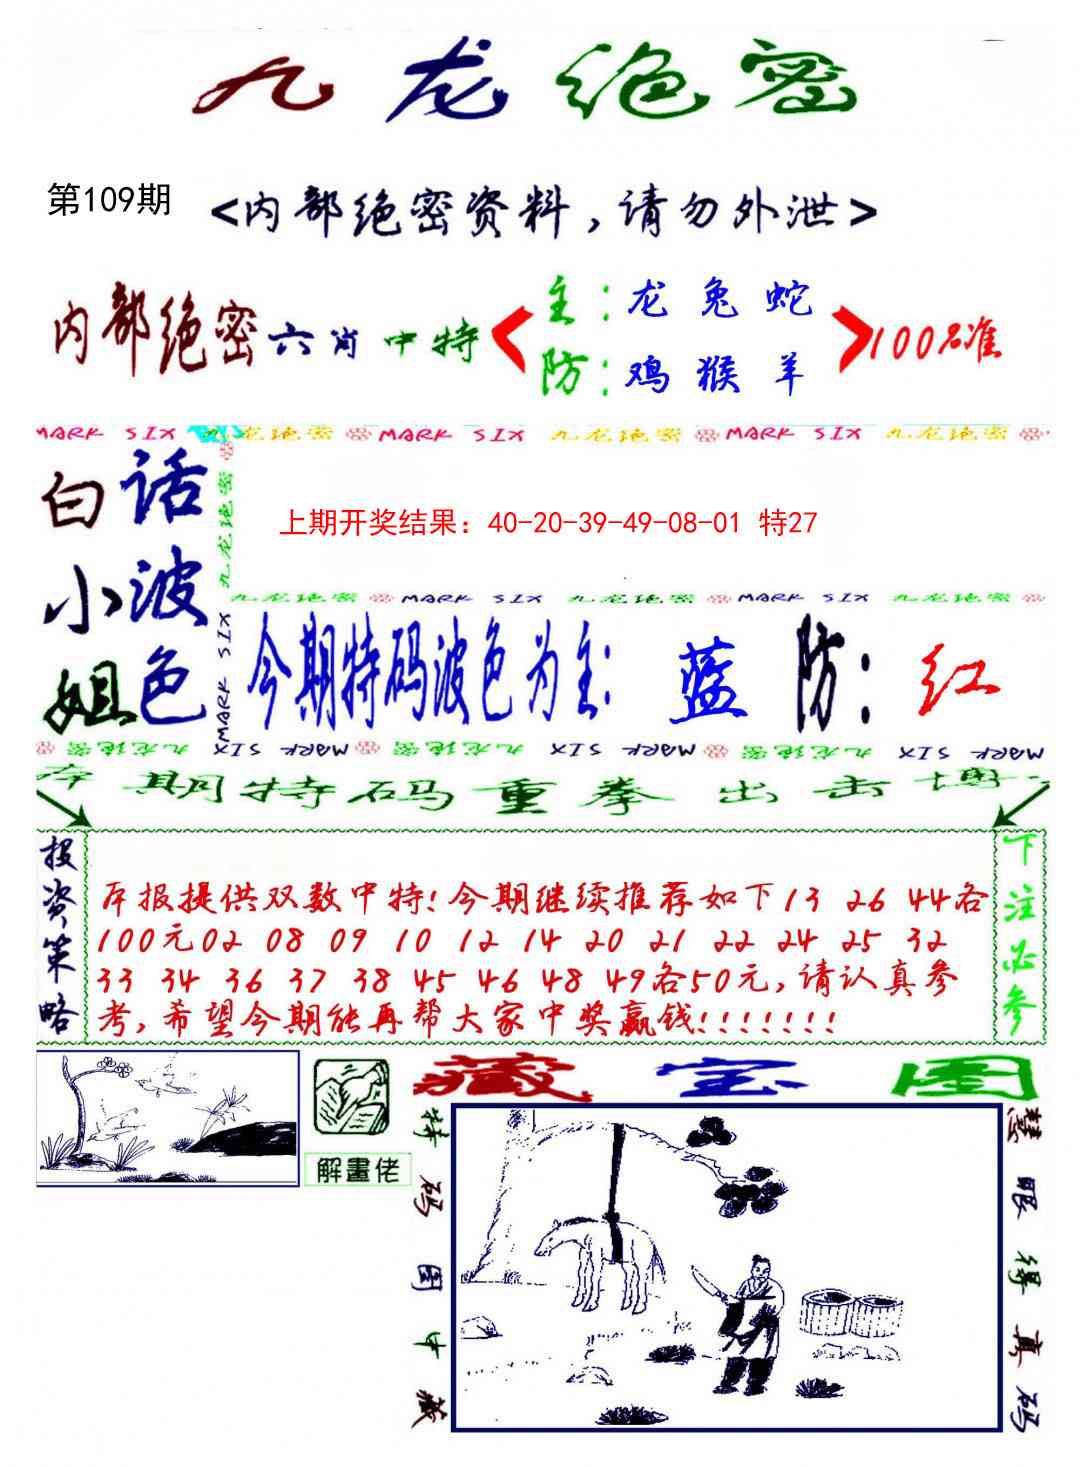 九龙绝密
第109期
<内部绝密资料,请勿外泄>
内部绝密六肖中特
主:龙 兔 蛇
防:鸡 猴 羊
100%准
MARK SIX 九龙绝密 MARK SIX 九龙绝密 MARK SIX 九龙绝密
白小姐
话波色
九龙绝密
MARK SIX
上期开奖结果：40-20-39-49-08-01 特27
九龙绝密 MARK SIX 九龙绝密 MARK SIX 九龙绝密
今期特码波色为主: 蓝 防: 红
九龙绝密 MARK SIX 九龙绝密 MARK SIX 九龙绝密 MARK SIX
本期特码重拳出击博
投资策略
本报提供双数中特!今期继续推荐如下13 26 44各
100元02 08 09 10 12 14 20 21 22 24 25 32
33 34 36 37 38 45 46 48 49各50元,请认真参
考,希望今期能再帮大家中奖赢钱!!!!!!!
下注必参
解畫佬
藏宝图
特码图中藏
慧眼得真码